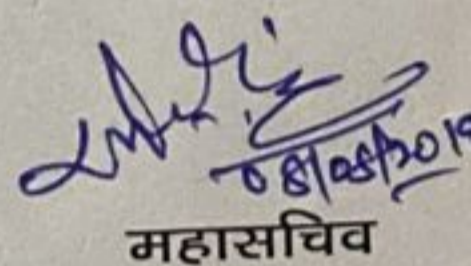 08/05/2019
महासचिव